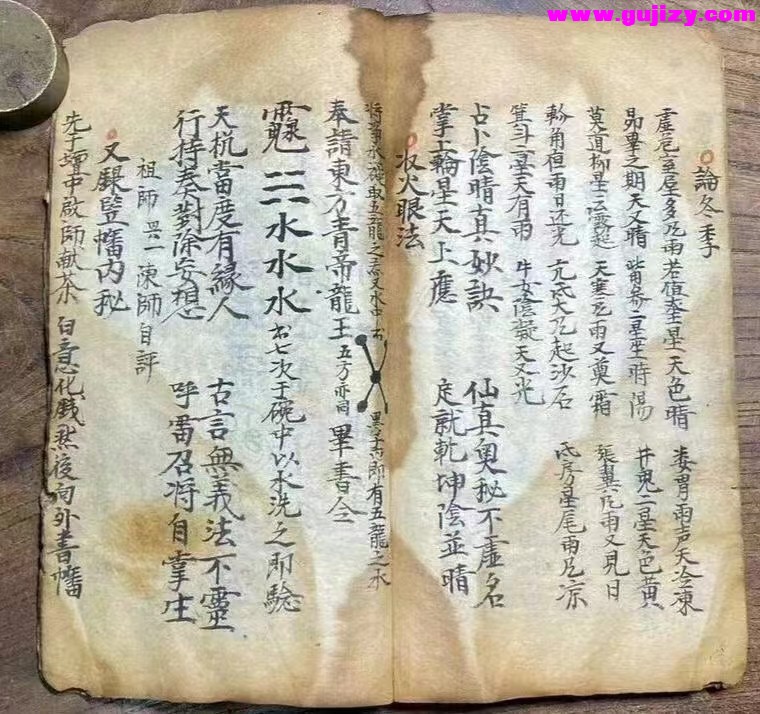 www.gujizy.com
論冬季
虛危室壁多風雨若值奎星天色晴 婁胃雨声天冷凍
昴畢之期天又晴 觜參二星坐時陽 井鬼二星天色黃
莫道柳星云霧起 天寒風雨又奠霜 張翼風雨又見日
軫角但雨日还光 亢氐大風起沙石 氐房星尾雨風凉
箕斗二星天有雨 牛女陰凝天又光
占卜陰晴真妙訣 仙真奥秘不虛名
掌上輪星天上應 定就乾坤陰並晴
收火眼法
將 水一碗取五龍之 又水中书 黑子 即有五龍之水
奉請東方青帝龍王 五方亦同 畢書
三 水水水 书七次于碗中以水洗之即驗
天杭當度有緣人 古言無義法不靈
行持奏對除妄想 呼雷召將自掌生
祖師 一陳師自評
又録竪幡内秘
先于壇中啟師献茶 白意化 然後向外書幡